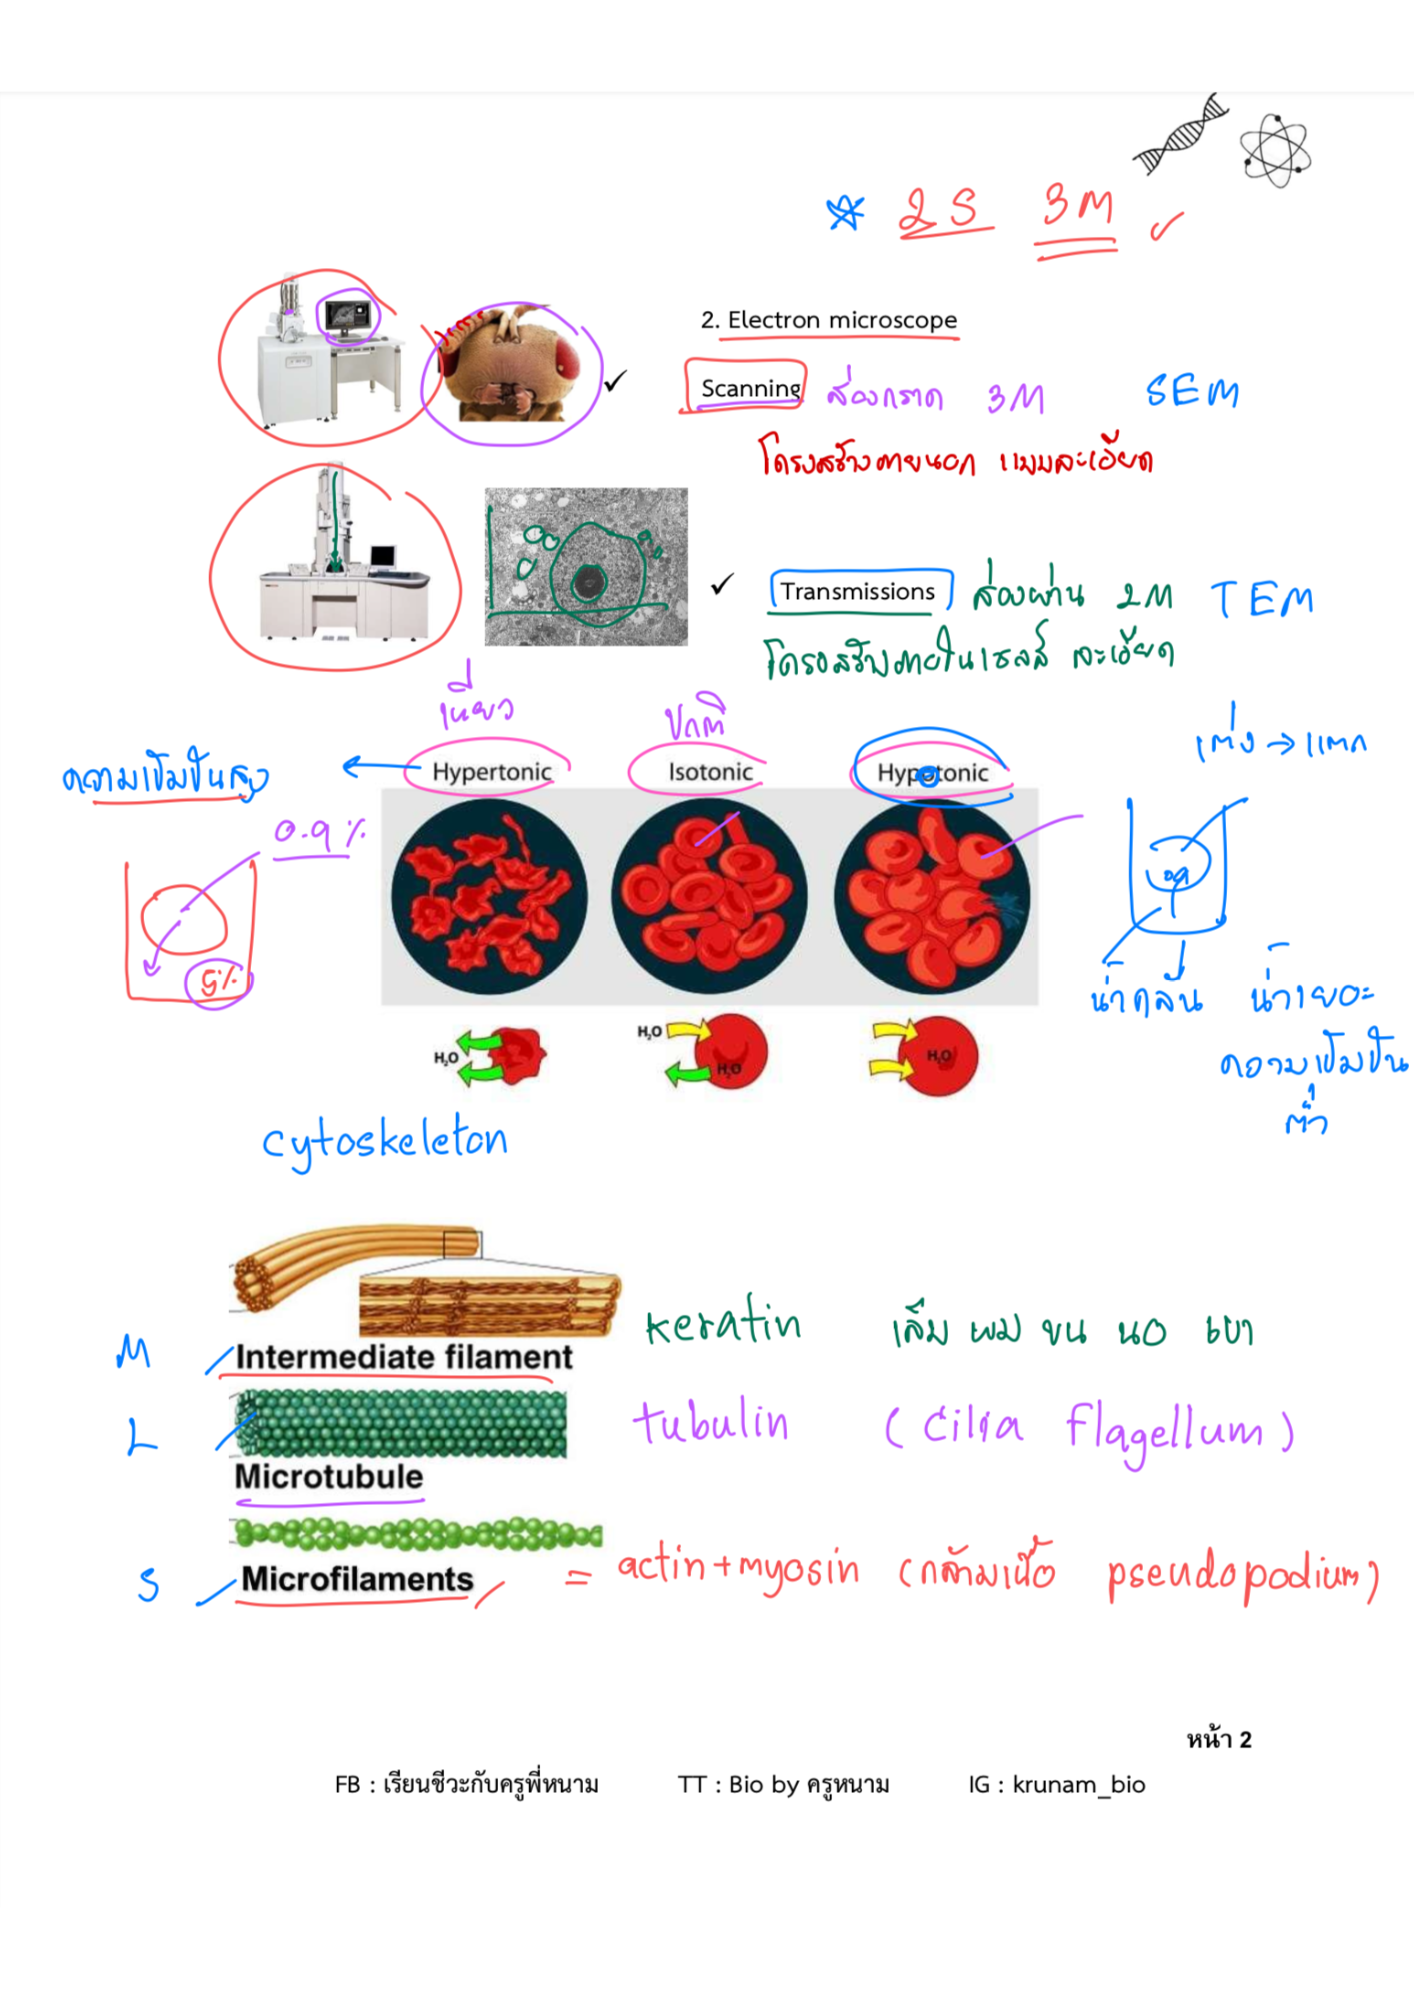 2S 3M
2. Electron microscope
Scanning ส่องกราด 3M SEM
โครงสร้างภายนอก แบบละเอียด
Transmissions ส่องผ่าน 2M TEM
โครงสร้างภายในเซลล์ ละเอียด
เหี่ยว ปกติ เต่ง → แตก
ความเข้มข้นสูง Hypertonic Isotonic Hypotonic
0.9%
5%
น้ำกลั่น น้ำเยอะ
ความเข้มข้น
ต่ำ
H₂O H₂O H₂O H₂O
cytoskeleton
keratin เล็บ ผม ขน นอ เขา
M Intermediate filament
L tubulin (cilia flagellum)
Microtubule
S Microfilaments = actin+myosin (กล้ามเนื้อ pseudopodium)
หน้า 2
FB : เรียนชีวะกับครูพี่หนาม TT : Bio by ครูหนาม IG : krunam_bio